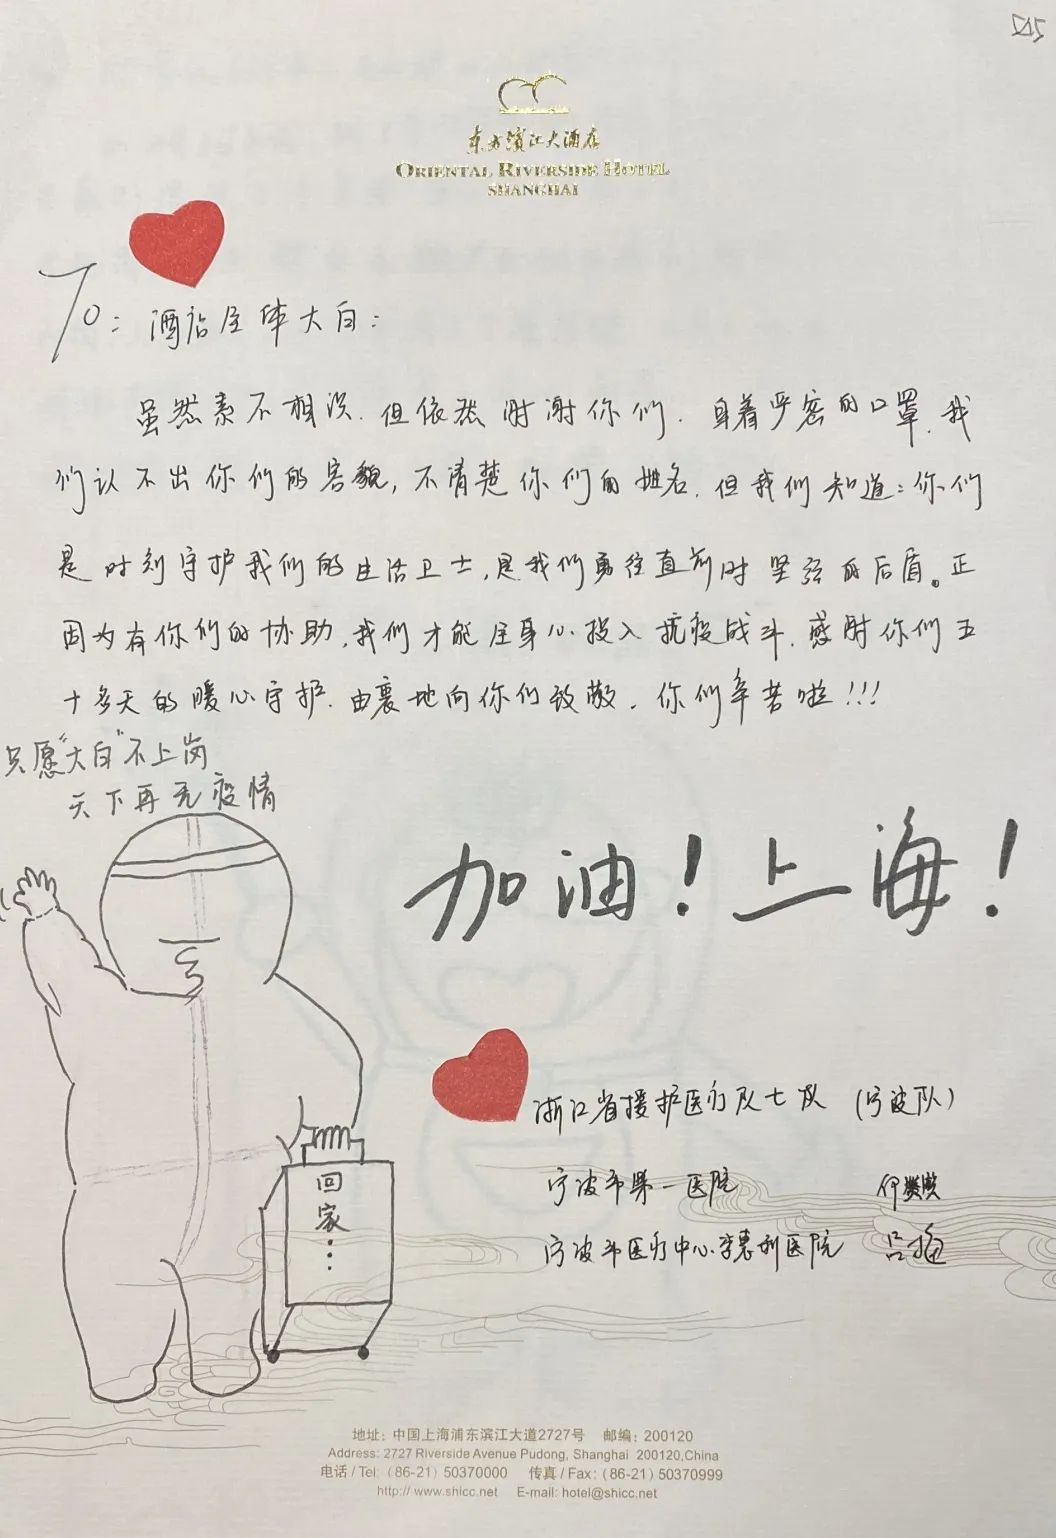 525
东方滨江大酒店
ORIENTAL RIVERSIDE HOTEL
SHANGHAI
To：酒店全体大白：
虽然素不相识，但依然感谢你们．身着严密的口罩，我
们认不出你们的容貌，不清楚你们的姓名，但我们知道：你们
是时刻守护我们的生活卫士，是我们勇往直前时坚强的后盾。正
因为有你们的协助，我们才能全身心投入抗疫战斗．感谢你们五
十多天的暖心守护．由衷地向你们致敬．你们辛苦啦!!!
只愿"大白"不上岗
天下再无疫情
加油！上海！
回家...
浙江省援沪医疗队七队（宁波队）
宁波市第一医院
宁波市医疗中心李惠利医院 吕
地址: 中国上海浦东滨江大道2727号 邮编: 200120
Address: 2727 Riverside Avenue Pudong, Shanghai 200120,China
电话 / Tel: (86-21) 50370000 传真 / Fax: (86-21) 50370999
http:// www.shicc.net E-mail: hotel@shicc.net